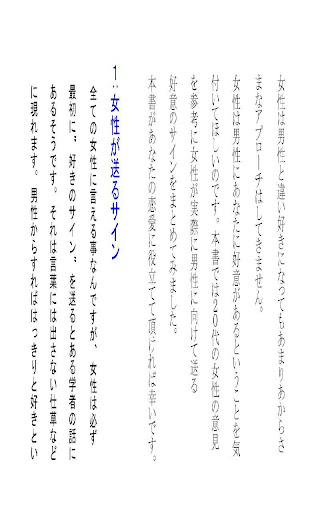 女性は男性と違い好きになってもあまりあからさ
まなアプローチはしてきません。
女性は男性にあなたに好意があるということを気
付いてほしいのです。本書では20代の女性の意見
を参考に女性が実際に男性に向けて送る
好意のサインをまとめてみました。
本書があなたの恋愛に役立てて頂ければ幸いです。
1:女性が送るサイン
全ての女性に言える事なんですが、女性は必ず
最初に〝好きのサイン〟を送るとある学者の話に
あるそうです。それは言葉には出さない仕草など
に現れます。男性からすればはっきりと好きとい